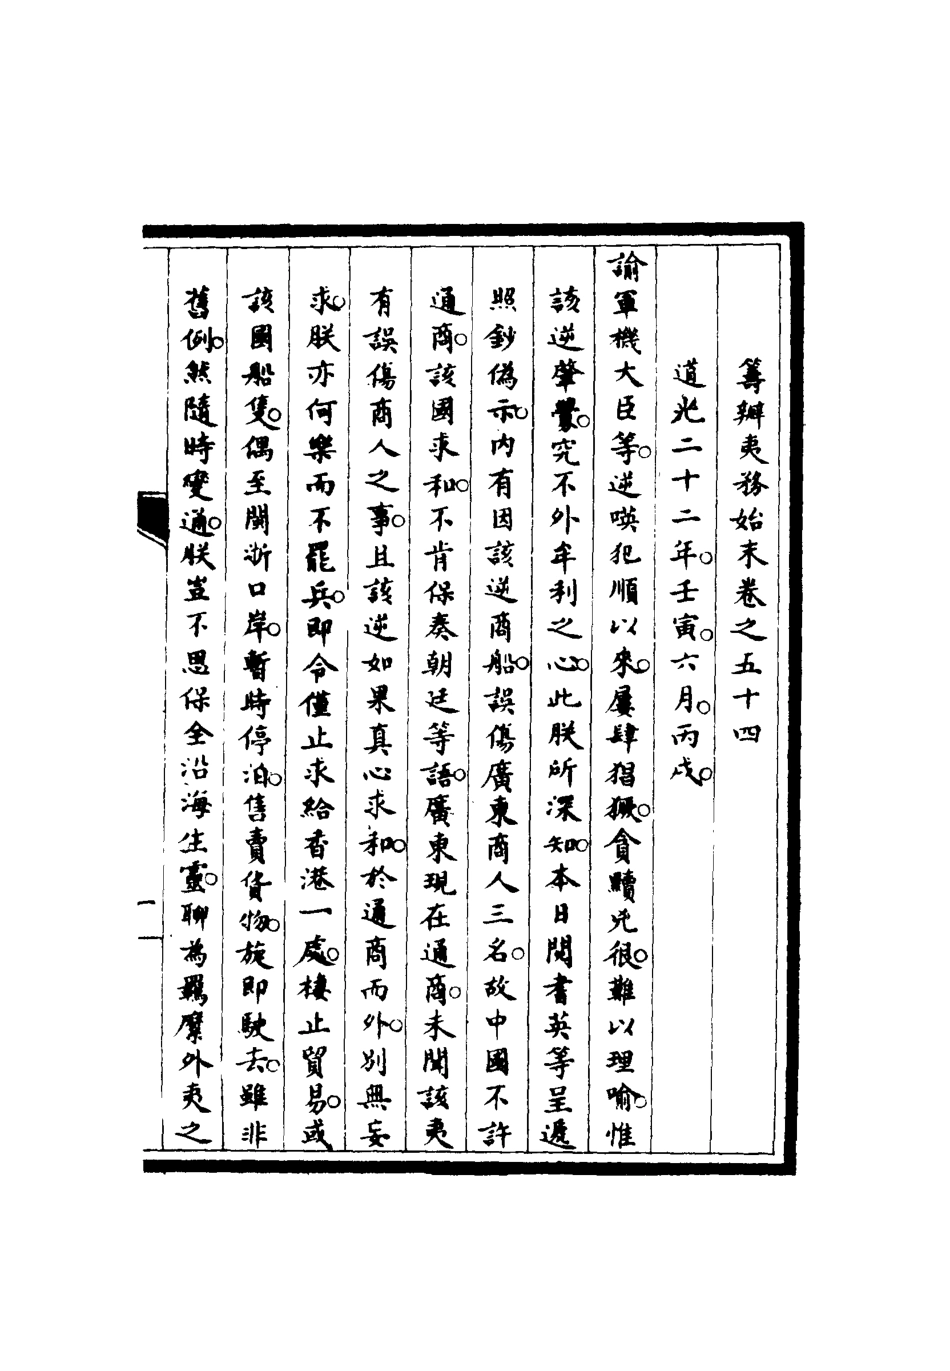 籌辦夷務始末卷之五十四
道光二十二年。壬寅。六月。丙戌。
諭軍機大臣等。逆嘆犯順以來。屢肆猖獗。貪黷兇很。難以理喻。惟
該逆肇釁。究不外牟利之心。此朕所深知。本日閱耆英等呈遞
照鈔偽示。內有因該逆商船。誤傷廣東商人三名。故中國不許
通商。該國求和。不肯保奏朝廷等語。廣東現在通商。未聞該夷
有誤傷商人之事。且該逆如果真心求和。於通商而外。別無妄
求。朕亦何樂而不罷兵。即令僅止求給香港一處。棲止貿易。或
該國船隻。偶至閩浙口岸。暫時停泊。售賣貨物。旋即駛去。雖非
舊例。然隨時變通。朕豈不思保全沿海生靈。聊為羈縻外夷之
一